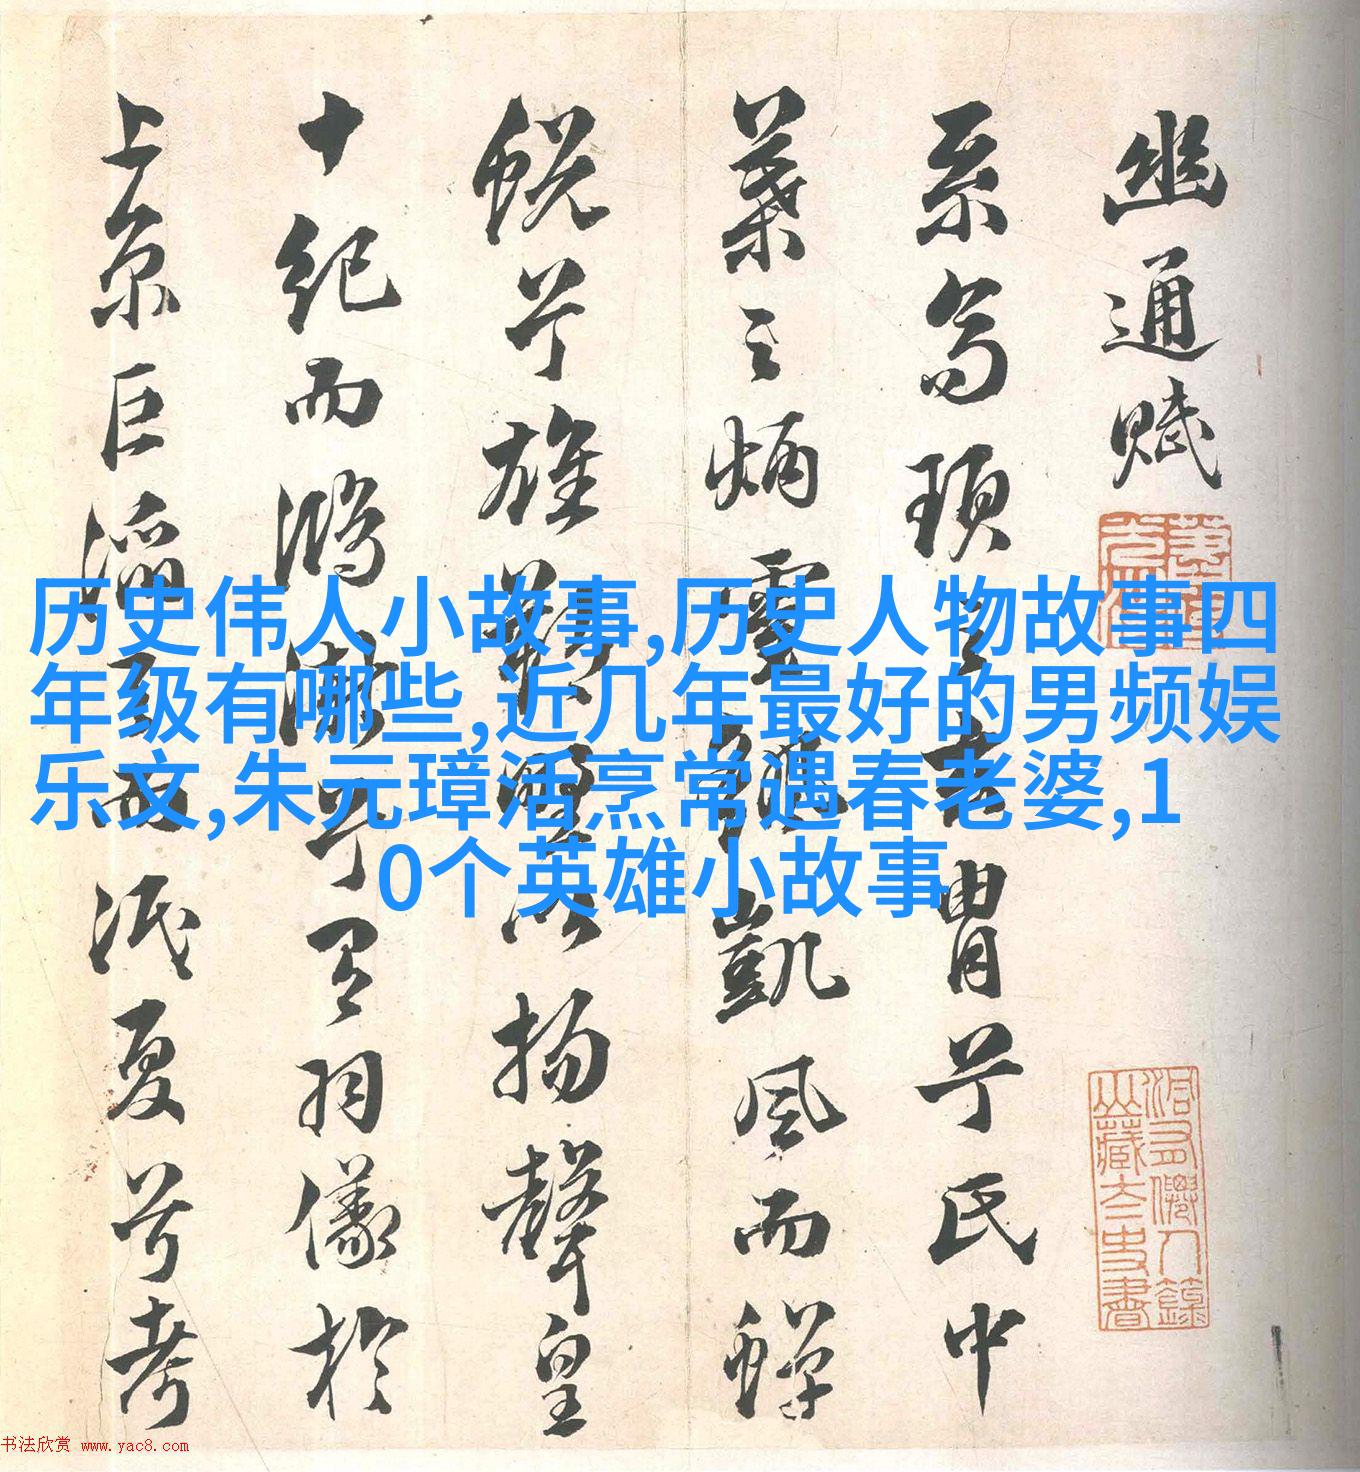 幽通賦
系高頊之玄胄兮氏中
葉之炳靈繇凱風而蟬
蛻兮雄朔野以揚聲皇
十紀而鴻漸兮有羽儀於
上京巨滔天而泯夏兮考
历史伟人小故事,历史人物故事四
年级有哪些,近几年最好的男频娱
乐文,朱元璋活烹常遇春老婆,1
0个英雄小故事
书法欣赏 www.yac8.com